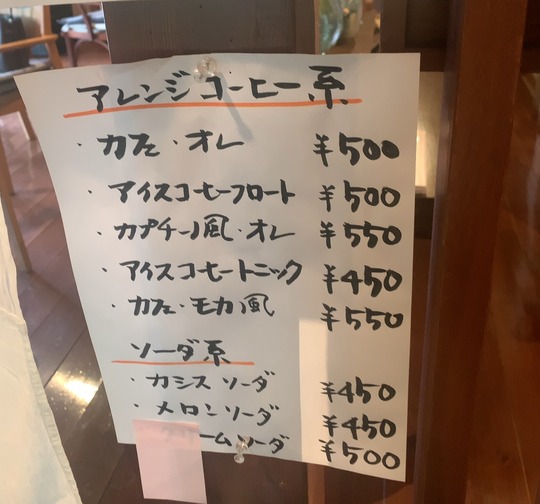 アレンジコーヒー系
・カフェ・オレ ¥500
・アイスコーヒーフロート ¥500
・カプチーノ風・オレ ¥550
・アイスコーヒートニック ¥450
・カフェ・モカ風 ¥550
ソーダ系
・カシスソーダ ¥450
・メロンソーダ ¥450
ームソーダ ¥500